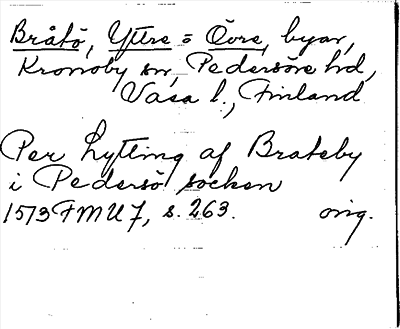 Bråtö, Yttre = Övre, byar,
Kronoby sn, Pedersöre hd,
Vasa l., Finland
Per Lytting af Brateby
i Pedersö socken
1573 FMU 7, s. 263. orig.